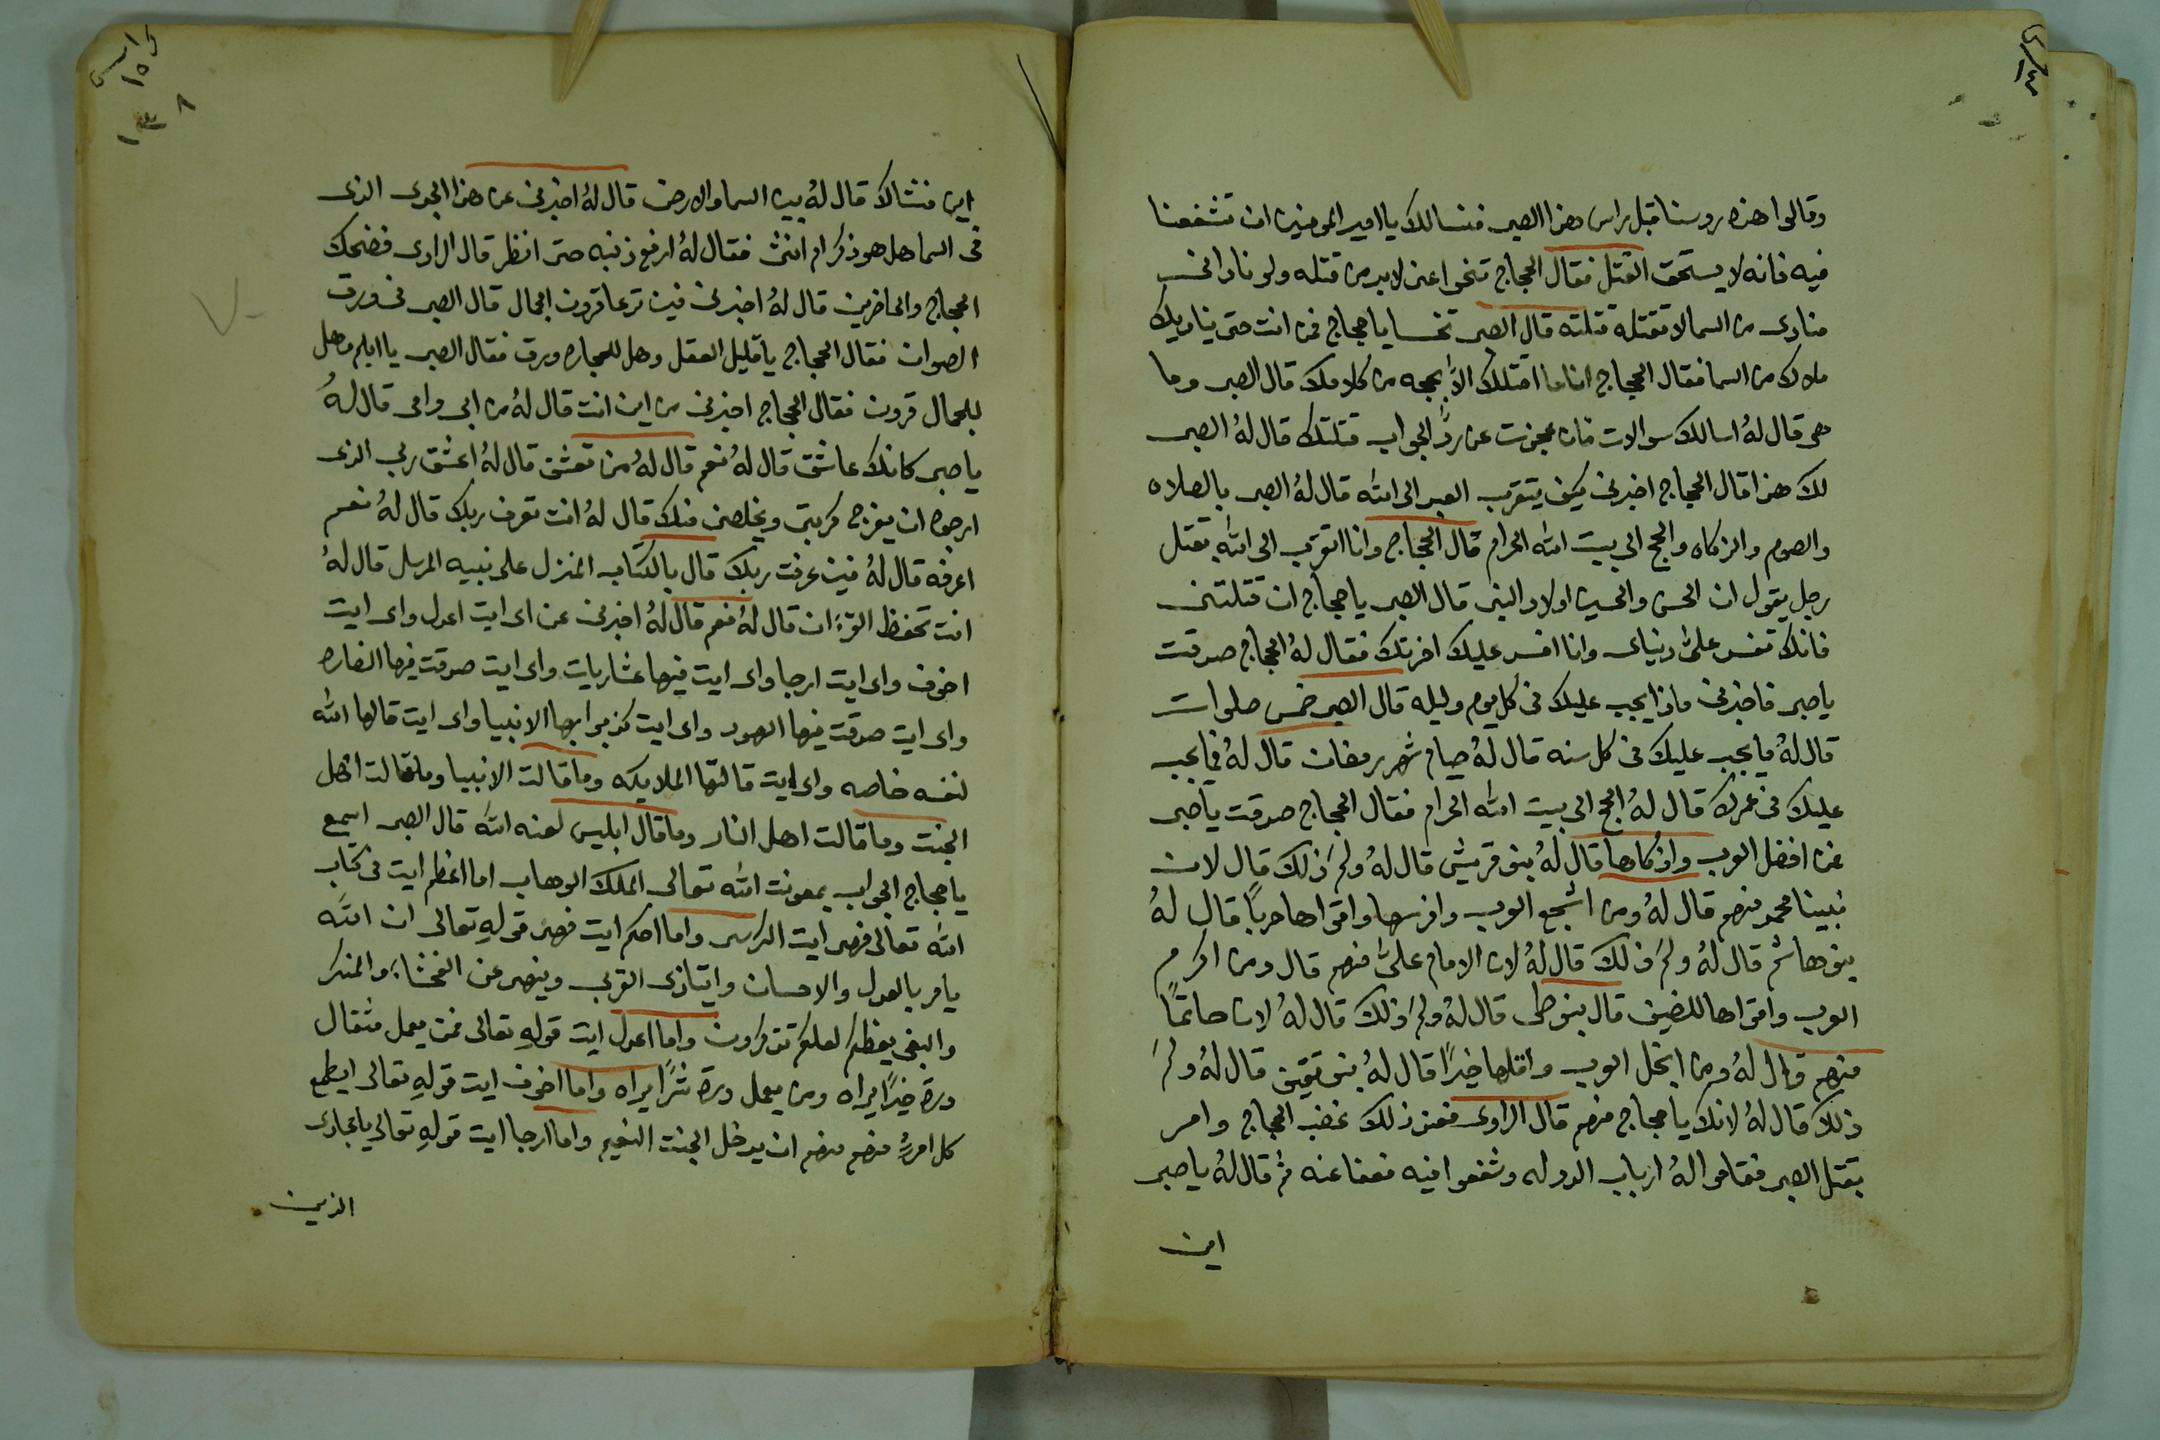 وقالوا هذه روسنا قبل راس هذا الصبى فنسالك يا امير المومنين ان تشفعنا
فيه فانه لا يستحق القتل فقال الحجاج تنحوا عنى لابد من قتله ولو نادانى
منادى من السما لا تقتله قتلته قال الصبى تخسا يا حجاج فمن انت حتى يناديك
ملاك من السما فقال الحجاج انا ما اقتلك الا بحجه من كلامك قال الصبى وما
هى قال له اسالك سوالات فان عجزت عن رد الجواب قتلتك قال له الصبى
لك هذا قال الحجاج اخبرنى كيف يتقرب العبد الى الله قال له الصبى بالصلاه
والصوم والزكاه والحج الى بيت الله الحرام قال الحجاج وانا اتقرب الى الله بقتل
رجل يقول ان الحسن والحسين اولاد النبى قال الصبى يا حجاج ان قتلتنى
فانك تفسد على دنياى وانا افسد عليك اخرتك فقال له الحجاج صدقت
يا صبى فاخبرنى ماذا يجب عليك فى كل يوم وليله قال الصبى خمس صلوات
قال له فما يجب عليك فى كل سنه قال له صيام شهر رمضان قال له فما يجب
عليك فى عمرك قال له الحج الى بيت الله الحرام فقال الحجاج صدقت يا صبى
فمن افضل العرب واذكاها قال له بنو قريش قال له ولم ذلك قال لان
نبينا محمد منهم قال له ومن اشجع العرب وافرسها واقواها حربًا قال له
بنو هاشم قال له ولم ذلك قال له لان الامام على منهم قال ومن اكرم
العرب واقراها للضيف قال بنو طى قال له ولم ذلك قال له لان حاتمًا
منهم قال له ومن ابخل العرب واقلها خيرًا قال له بنو ثقيف قال له ولم
ذلك قال له لانك يا حجاج منهم قال الراوى فعند ذلك غضب الحجاج وامر
بقتل الصبى فقاموا له ارباب الدوله وشفعوا فيه فعفا عنه ثم قال له يا صبى
اين
اين منشاك قال له بين السما والارض قال له اخبرنى عن هذا الجدى الذى
فى السما هل هو ذكر ام انثى فقال له ارفع ذنبه حتى انظر قال الراوى فضحك
الحجاج والحاضرين قال له اخبرنى فين ترعا قرون الجمال قال الصبى فى ورق
الصوان فقال الحجاج يا قليل العقل وهل للحجاره ورق فقال الصبى يا ابلم وهل
للجمال قرون فقال الحجاج اخبرنى من اين انت قال له من ابى وامى قال له
يا صبى كانك عاشق قال له نعم قال له من تعشق قال له اعشق ربى الذى
ارجوه ان يفرج كربتى ويخلصنى منك قال له انت تعرف ربك قال له نعم
اعرفه قال له فين عرفت ربك قال بالكتاب المنزل على نبيه المرسل قال له
انت تحفظ القرءان قال له نعم قال له اخبرنى عن اى ايت اعدل واى ايت
اخوف واى ايت ارجا واى ايت فيها عشار يات واى ايت صدقت فيها النصاره
واى ايت صدقت فيها اليهود واى ايت كذبوا بها الانبيا واى ايت قالها الله
لنفسه خاصه واى ايت قالتها الملايكه وما قالت الانبيا وما قالت اهل
الجنت وما قالت اهل النار وما قال ابليس لعنه الله قال الصبى اسمع
يا حجاج الجواب بمعونت الله تعالى الملك الوهاب اما اعظم ايت فى كتاب
الله تعالى فهى ايت الكرسى واما احكم ايت فهى قوله تعالى ان الله
يامر بالعدل والاحسان وايتاذى القربى وينهى عن الفحشاء والمنكر
والبغى يعظكم لعلكم تتذكرون واما اعدل ايت قوله تعالى فمن يعمل مثقال
درة خيرًا يراه ومن يعمل درة شرًا يراه واما اخوف ايت قوله تعالى ايطمع
كل امرئ منهم منهم ان يدخل الجنت النعيم واما ارجا ايت قوله تعالى يا عبادى
الذين